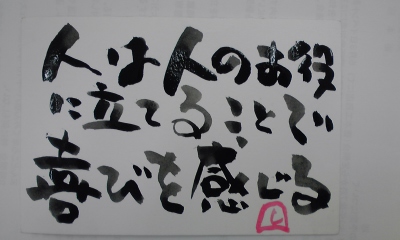 人は人のお役
に立てることで
喜びを感じる